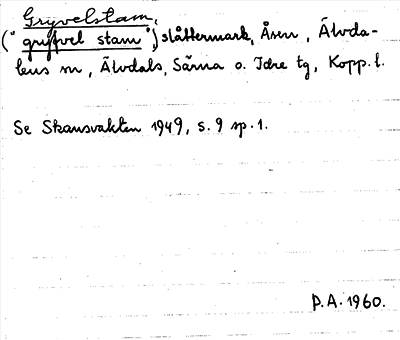 Gryvelstam,
("gryfvel stam"), slåttermark, Åsen, Älvda-
lens sn, Älvdals, Särna o. Idre tg, Kopp. l.
Se Skansvakten 1949, s. 9 sp. 1.
P.A. 1960.